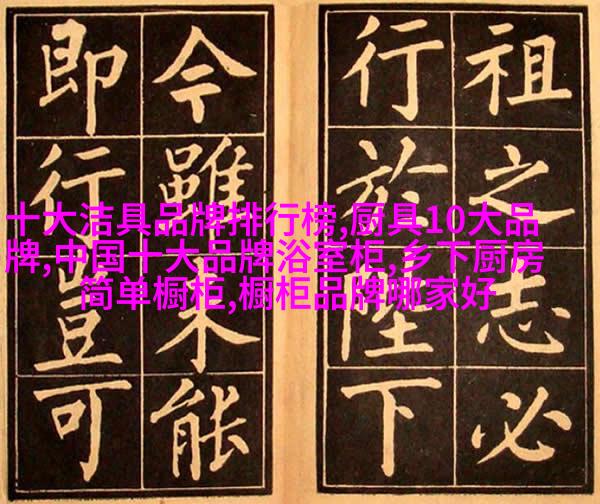 祖之志必
行於陛下
今雖未能
即行豈可
十大洁具品牌排行榜,厨具10大品
牌,中国十大品牌浴室柜,乡下厨房
简单橱柜,橱柜品牌哪家好